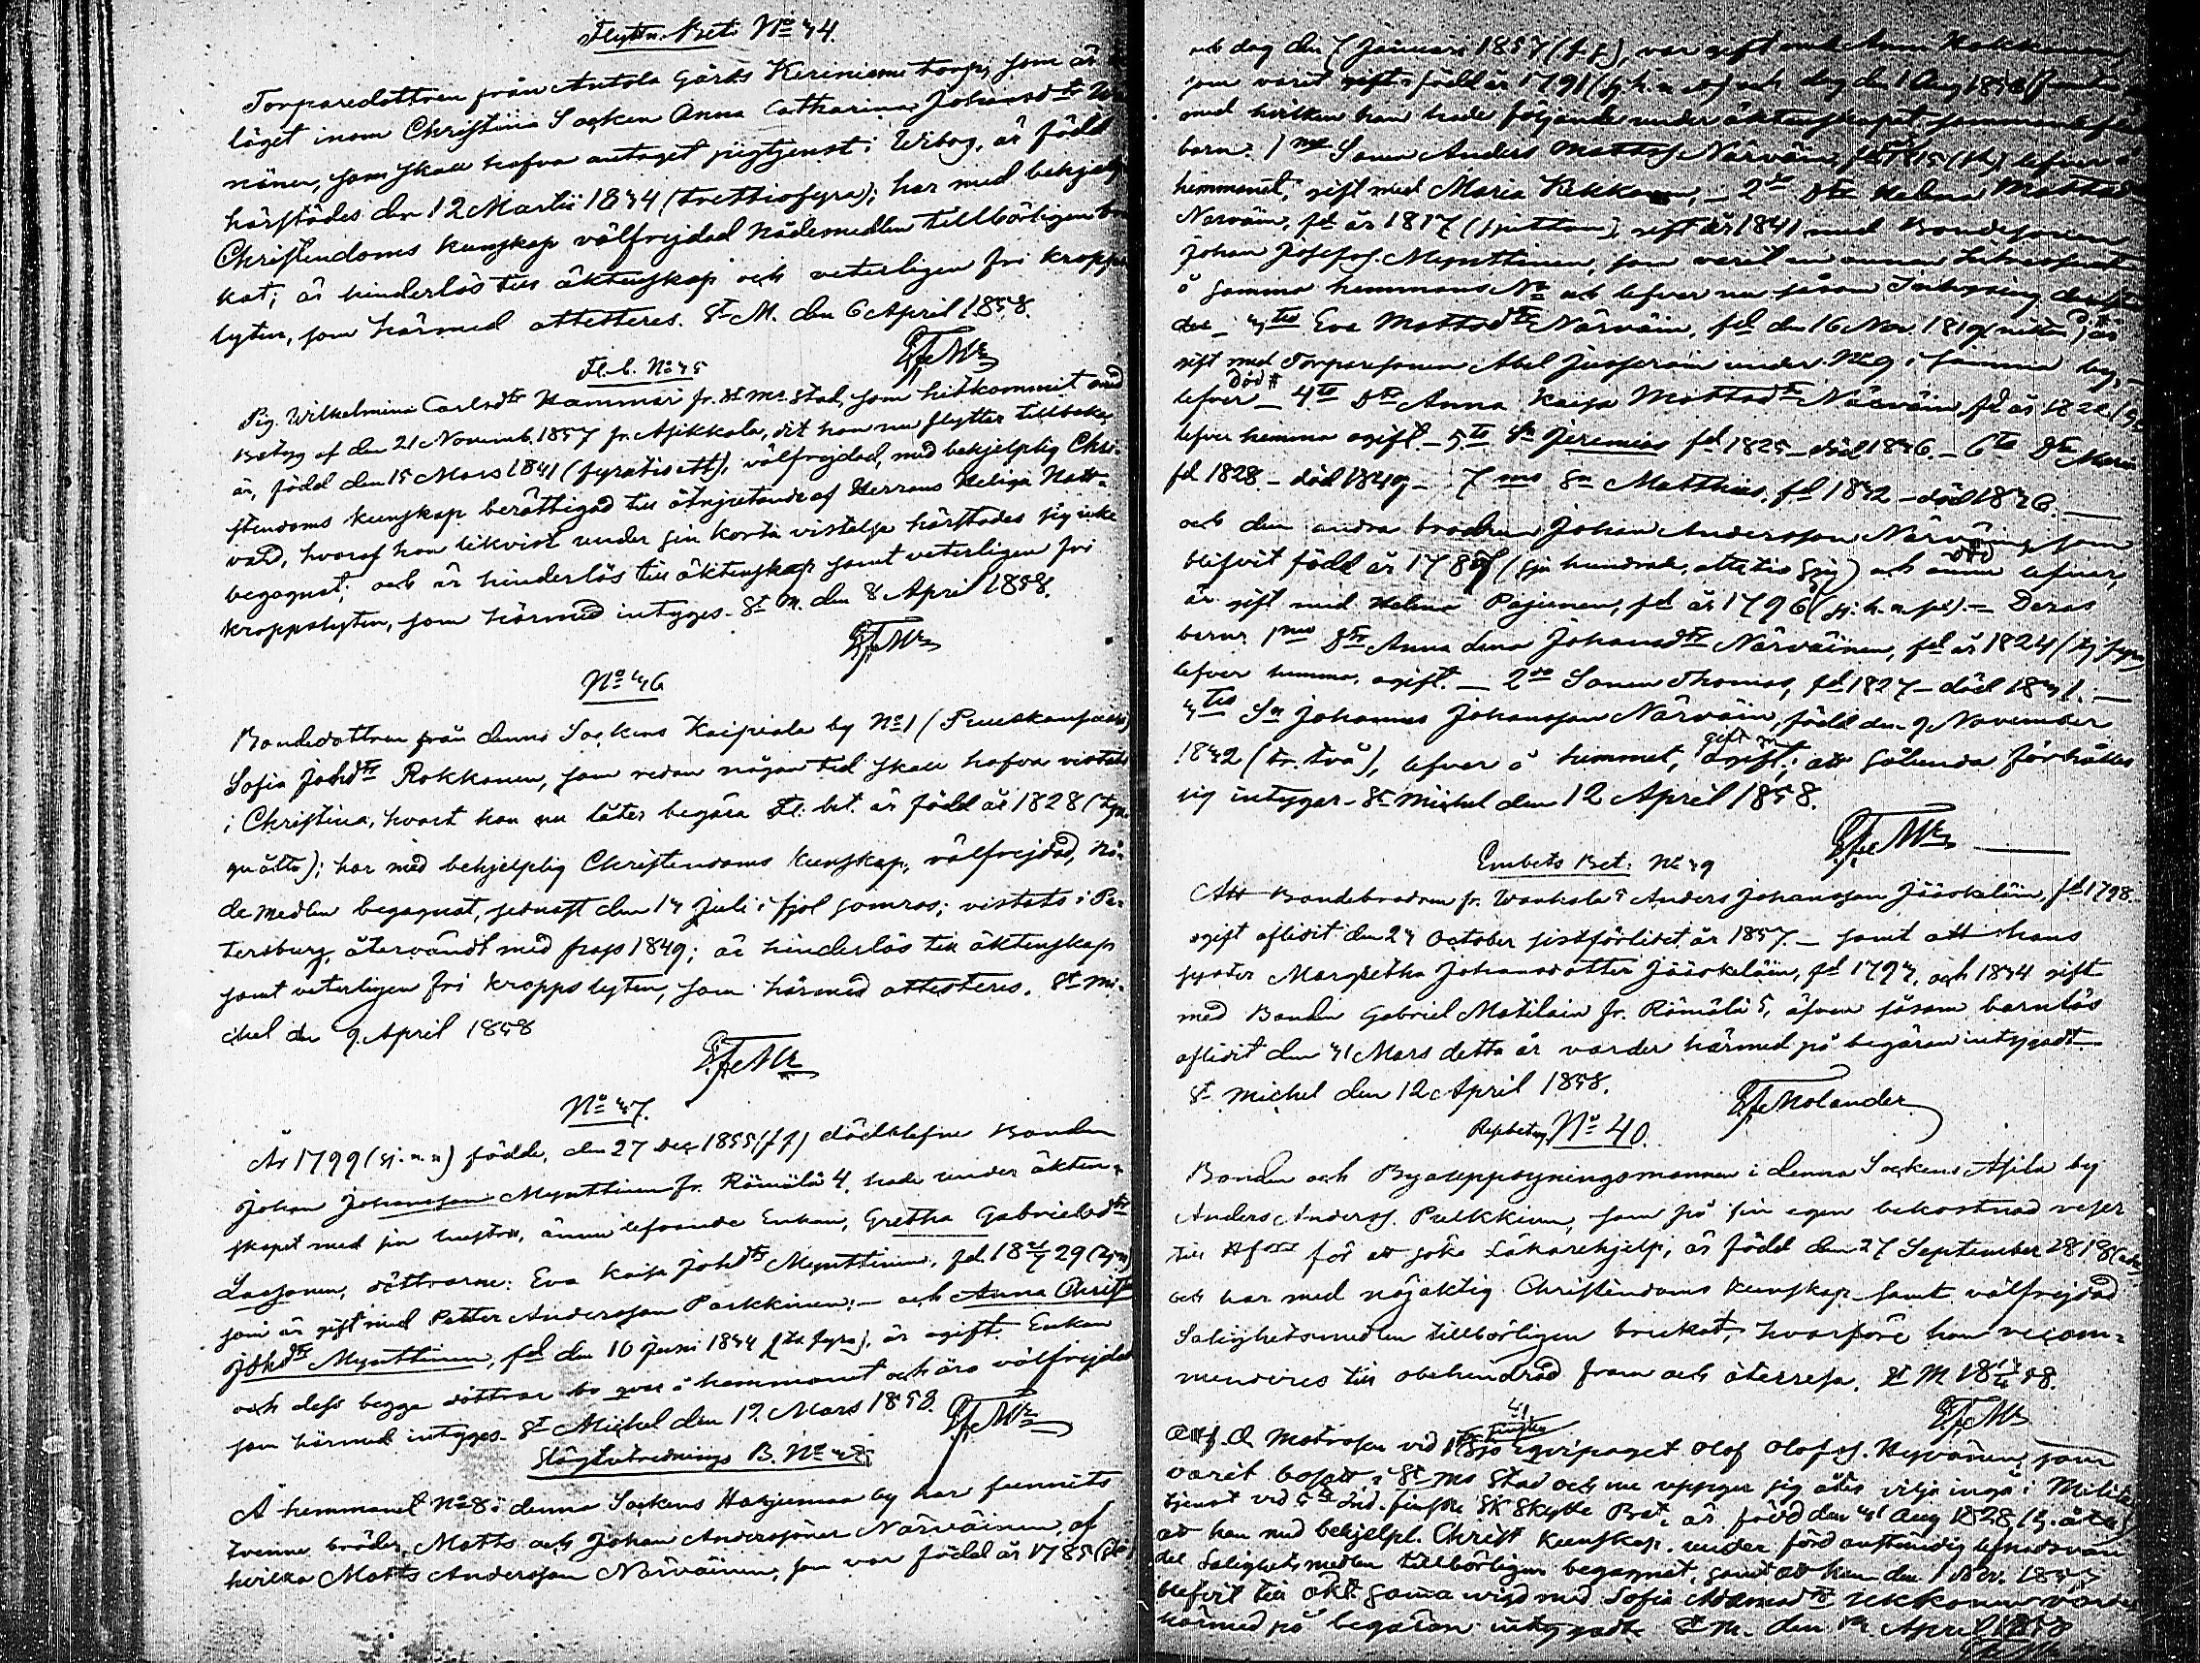 Flyttn. Bet. No 34.
Torparedottren från Antola Gårds Kiriniemi torp, som är
läget inom Christina Socken Anna Catharina Johansdtr
nänen, som skall hafva antaget pigtjenst i Wiborg, är född
härstädes den 12 Martii 1834 (trettiofyra); har med behjelplig
Christendoms kunskap välfrejdad Nådemedlen tillbörligen bru
kat; är hinderlös till äktenskap och veterligen fri kropps
lyten, som härmed attesteres. St M. den 6 April 1858.
Fl. b. No 35
Pig. Wilhelmina Carlsdtr Hammar fr. St Ms Stad, som hitkommit med
Betyg af den 21 Novemb. 1857 fr. Asikkala, dit hon nu flyttar tillbaka,
är, född den 15 Mars 1841 (fyratioett), välfrejdad, med behjelplig Chri-
stendoms kunskap berättigad till åtnjutande af Herrans Heliga Natt-
vard, hvaraf hon likvist under sin korta vistelse härstädes sig icke
begagnat; och är hinderlös till äktenskap samt veterligen fri
kroppslyten, som härmed intyges. St M. den 8 April 1858.
No 36
Bondedottren från denne Sockens Kaipiala by No 1
Sofia Johdtr Rokkanen, som redan någon tid skall hafva vistats
i Christina, hvart hon nu låter begära Fl. bet. är född år 1828 (tju
guåtta); har med behjelplig Christendoms kunskap, välfrejdad, Nå-
demedlen begagnat, senast den 13 Juli i fjol somras; vistats i Pe-
tersburg, återvändt med pass 1849; är hinderlös till äktenskap
samt veterligen fri kroppslyten, som härmed attesteres. St Mi-
chel den 9 April 1858
No 37.
År 1799 (sj. n. n) födde, den 27 Dec 1855 (f f) dödblefne Bonden
Johan Johansson Mynttinen fr. Rämälä 4, hade under äkten-
skapet med sin hustru, ännu lefvande Enkan, Gretha Gabrielsdtr
Lasonen, döttrarne: Eva Kaisa Johdtr Mynttinen, fd. 29
som är gift med Petter Andersson Parkkinen; – och Anna Christ
Johdtr Mynttinen, fd den 10 Juni 1834 (tr. fyra), är ogift. Enkan
och dess begge döttrar bo qvar å hemmanet och äro välfrejdade
som härmed intyges. St Michel den 17 Mars 1858.
Slägtutrednings B. No 38
Å hemmanet No 8 i denna Sockens Harjumaa by har funnits
tvenne bröder, Matts och Johan Anderssöner Närväinen, af
hvilka Matts Andersson Närväinen, som var född år 1785
och dog den 7 Januari 1857 (f f), var gift med Anna Hokkanen,
som varit född år 1791 (sj. h. n. e) och dog den 1 Aug
med hvilken han hade följande under äktenskapet sammanaflade
barn: 1mo Sonen Anders Mattss Närväin, fd 1815 lefver å
hemmanet, gift med Maria – 2do Dtr Helena Mattsdtr
Närväin, fd år 1817 (sjutton), gift år 1841 med Bondesonen
Johan Josefss. Mynttinen, som varit en annan
å samma hemmans No och lefver nu såsom Inhysing
des – 3tio Eva Mattsdtr Närväin, fd den 16 Nov. 1819 är
gift med Torparesonen Abel under No 9 i samma by, –
lefver död – 4to Dtr Anna Kaisa Mattsdtr Närväin fd år
lefver hemma ogift – 5to Sn Jeremias fd 1825 – död 1836. – 6to Dtr Maria
fd 1828 – död – 7mo Sn Matthias, fd 1832 – död 1836. –
och den andra brodren Johan Andersson Närväin, som
blifvit född år 1787 (sju hundrade, åttatio sju) och ännu död lefver,
är gift med Helena Pajunen, fd år 1796 (sj. h. n. sex). – Deras
barn: 1mo Dtr Anna Lena Johansdtr Närväinen, fd år 1824
lefver hemma, ogift. – 2do Sonen Thomas, fd 1827 – död 1831. –
3tio Sn Johannes Johansson Närväin, född den 9 November
1832 (tr. två), lefver å hemmet, gift ogift; att sålunda förhåller
sig intyges – St Michel den 12 April 1858.
Embets Bet. No 39
Att Bondebrodren fr. Anders Johansson Jääskeläin, fd 1798.
ogift aflidit den 23 October sistförlidet år 1857 – samt att hans
syster Margretha Johansdotter Jääskeläin, fd 1793, och 1834 gift
med Bonden Gabriel Matilain fr. Rämälä 5, äfven såsom barnlös
aflidit den 31 Mars detta år varder härmed på begäran intygadt.
St Michel den 12 April 1858.
Molander
No 40.
Bonden och Byauppsyningsmannen i denna Sockens Asila by
Anders Anderss. Pulkkinen, som på sin egen bekostnad reser
till Hfors för att söka Läkarehjelp, är född den 27 September 1818
och har med nöjaktig Christendoms kunskap samt välfrejdad
Salighetsmedlen tillbörligen brukat, hvarföre han recom-
menderes till obehindrad fram och återresa. St M
41
Matrosen vid 1 Sjö equipaget Olof Olofss. Hyvönen, som
varit bosatt i St Ms Stad och nu uppger sig åter vilja ingå i Militär
tjenst vid Ind. finska Skytte Bat. är född den 31 Aug 1828
att han med behjelpl. Christ. kunskap, under förd anständig lefnadsvan
del Salighetsmedlen tillbörligen begagnat, samt att han den 1 Nov.
blefvit till äkt. sama wigd med Sofia Ukkonen varder
härmed på begäran intygadt. St M. den April 1858